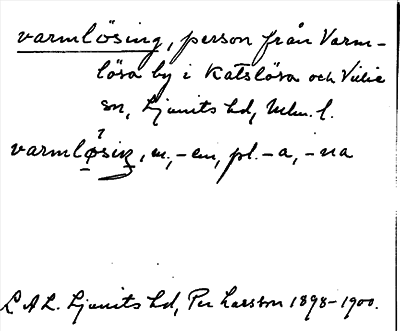 varmlösing, person från Varm-
lösa by i Katslösa och Villie
sn, Ljunits hd, Mlm. l.
varmlǫ́siŋ, m., -en, pl. -a, -na
L A L. Ljunits hd, Per Larsson 1898-1900.